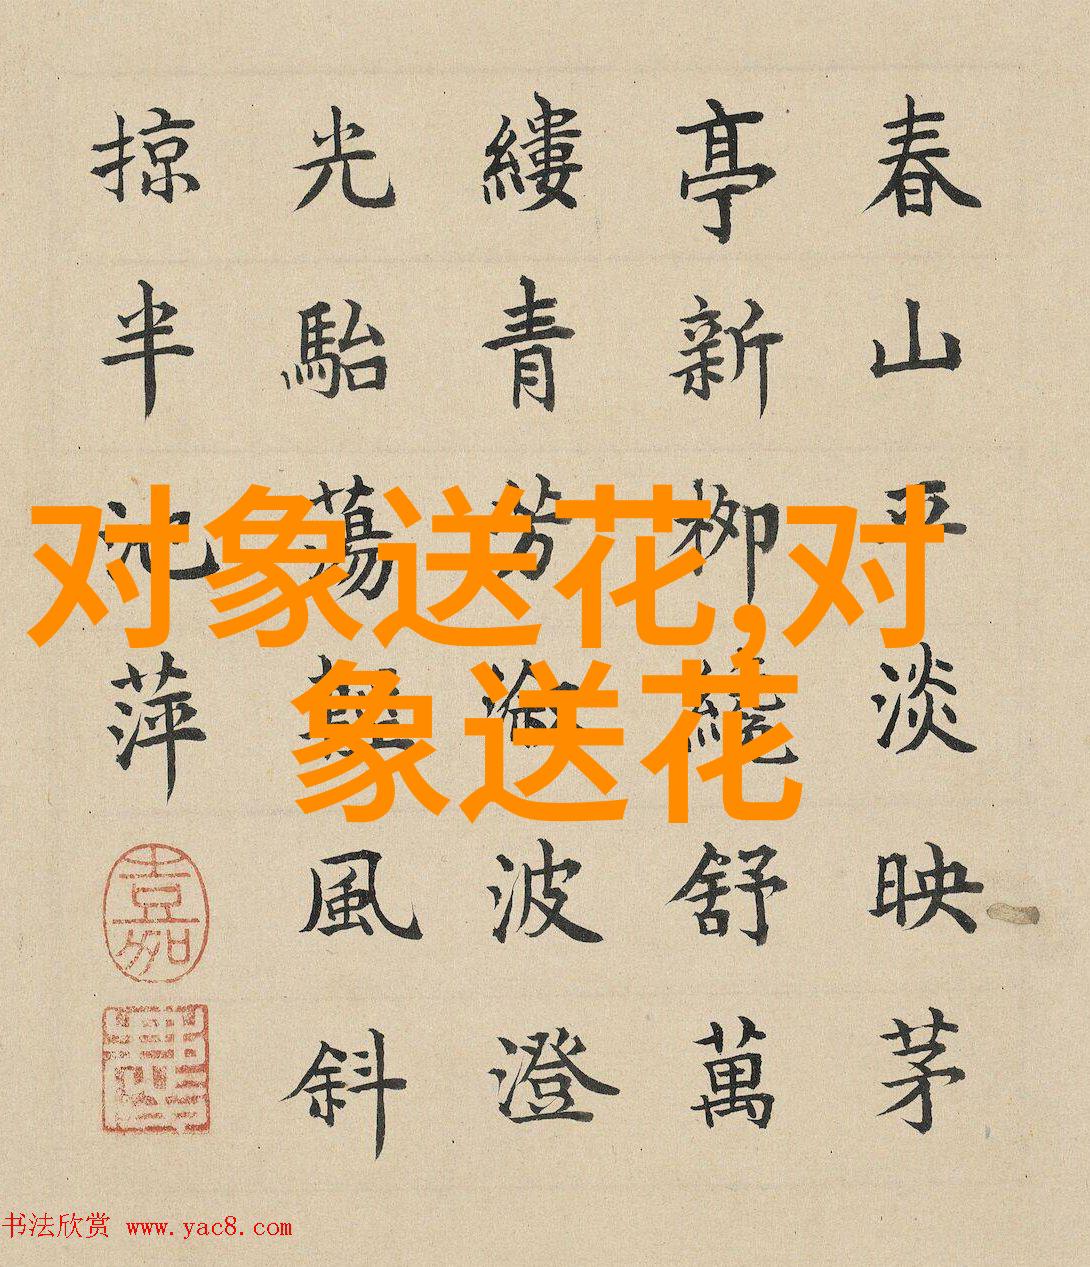 春山平淡映茅
亭新柳繞舒萬
縷青芳漵波澄
光駘蕩無風斜
掠半池萍
嘉
对象送花,对
象送花
书法欣赏 www.yac8.com